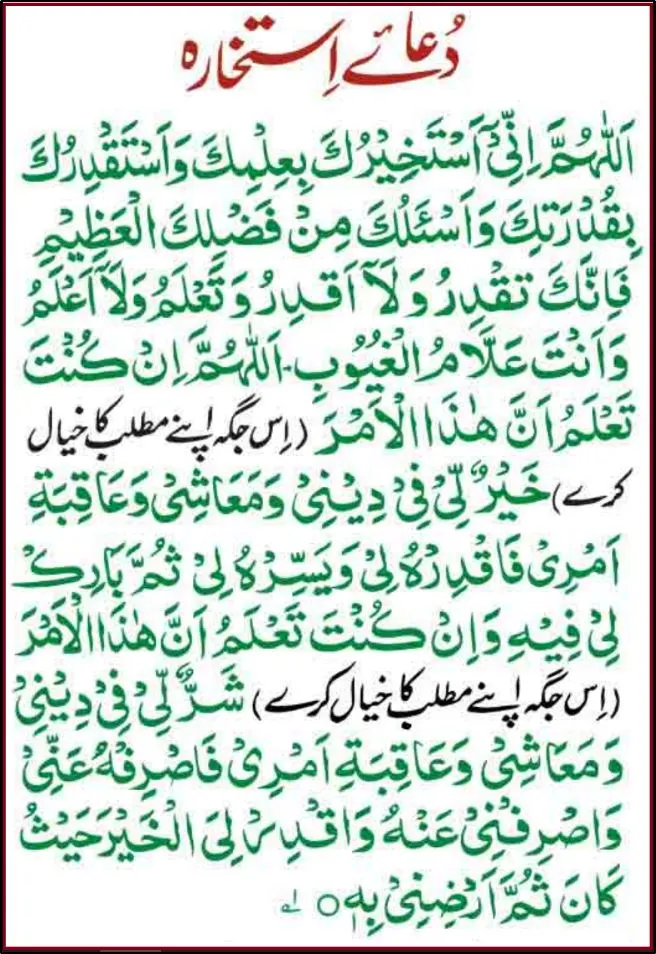 دُعائے اِستخارہ
اَللّٰهُمَّ اِنِّیْۤ اَسْتَخِیْرُكَ بِعِلْمِكَ وَاَسْتَقْدِرُكَ
بِقُدْرَتِكَ وَاَسْئَلُكَ مِنْ فَضْلِكَ الْعَظِیْمِ
فَاِنَّكَ تَقْدِرُ وَلَاۤ اَقْدِرُ وَتَعْلَمُ وَلَاۤ اَعْلَمُ
وَاَنْتَ عَلَّامُ الْغُیُوْبِ۔ اَللّٰهُمَّ اِنْ كُنْتَ
تَعْلَمُ اَنَّ هٰذَا الْاَمْرَ (اِس جگہ اپنے مطلب کا خیال
کرے) خَیْرٌ لِّیْ فِیْ دِیْنِیْ وَمَعَاشِیْ وَعَاقِبَةِ
اَمْرِیْ فَاقْدِرْهُ لِیْ وَیَسِّرْهُ لِیْ ثُمَّ بَارِكْ
لِیْ فِیْهِ وَاِنْ كُنْتَ تَعْلَمُ اَنَّ هٰذَا الْاَمْرَ
(اِس جگہ اپنے مطلب کا خیال کرے) شَرٌّ لِّیْ فِیْ دِیْنِیْ
وَمَعَاشِیْ وَعَاقِبَةِ اَمْرِیْ فَاصْرِفْهُ عَنِّیْ
وَاصْرِفْنِیْ عَنْهُ وَاقْدِرْ لِیَ الْخَیْرَ حَیْثُ
كَانَ ثُمَّ اَرْضِنِیْ بِهٖ ○